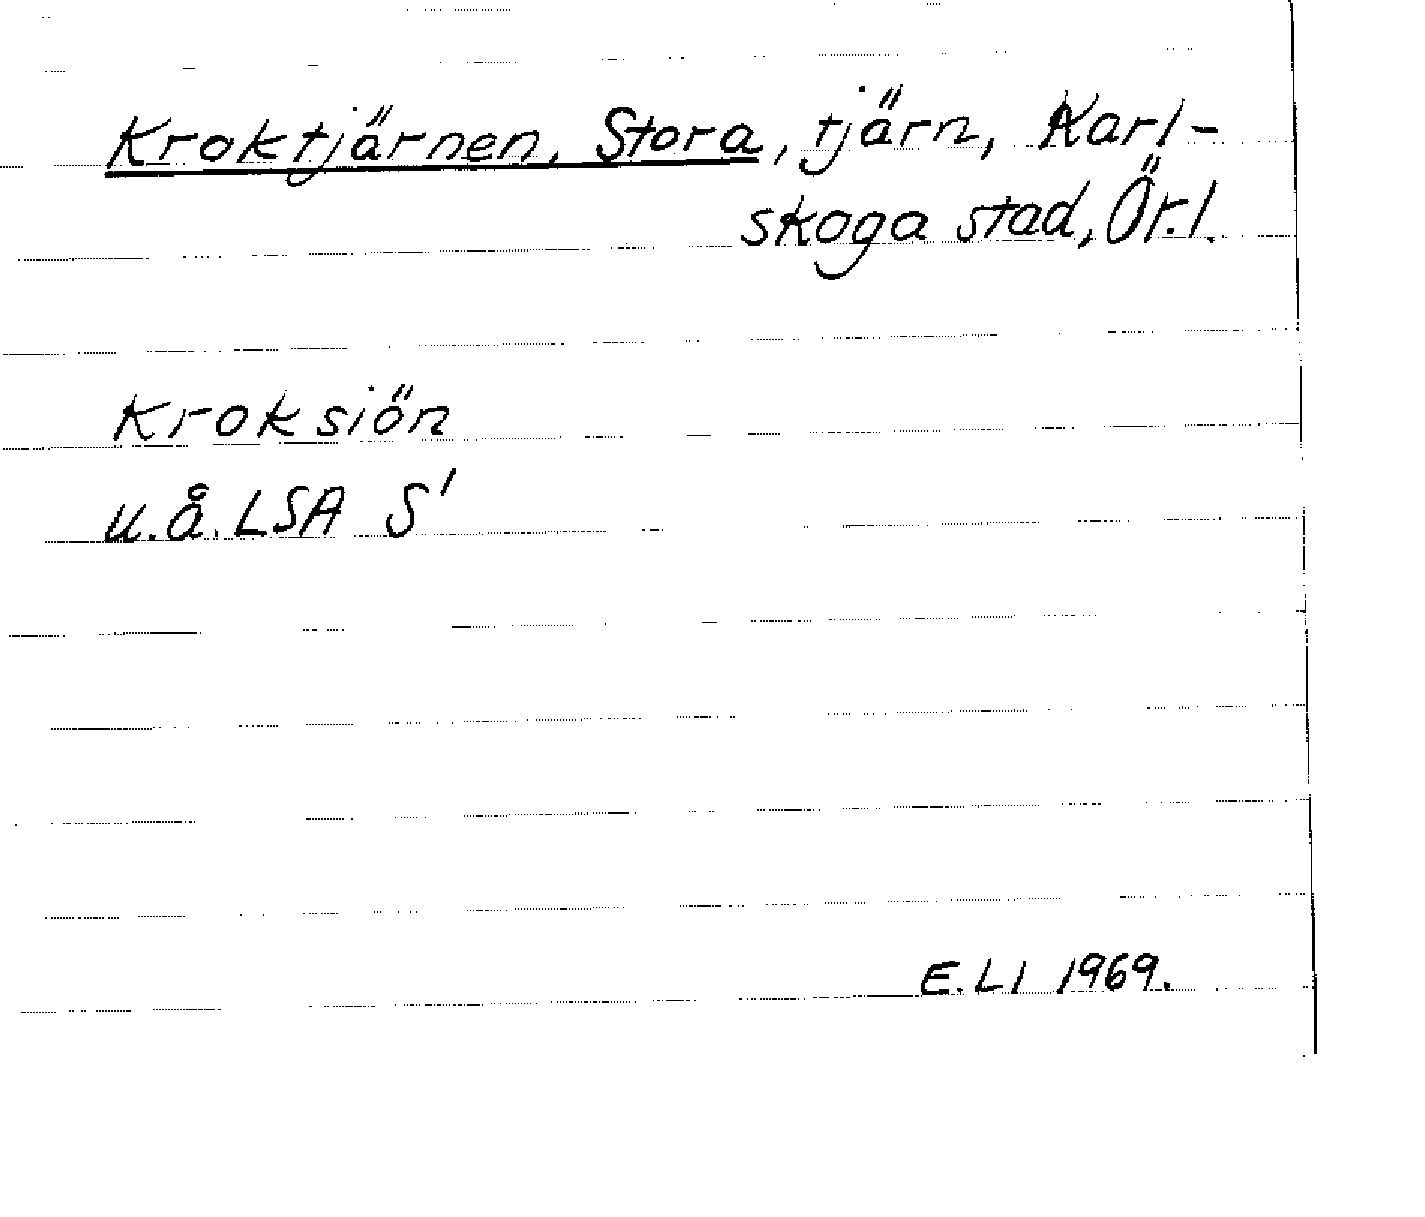 Kroktjärnen, Stora, tjärn, Karl-
skoga stad, Ör.l.
Kroksiön
u.å. LSA S'
E.LI 1969.